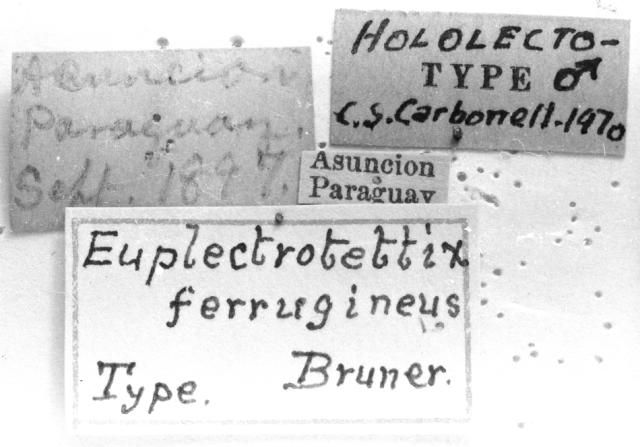 Asuncion
Paraguay
Sept. 1897.
HOLOLECTO-
TYPE ♂
C.S. Carbonell-1970
Asuncion
Paraguay
Euplectrotettix
ferrugineus
Type. Bruner.